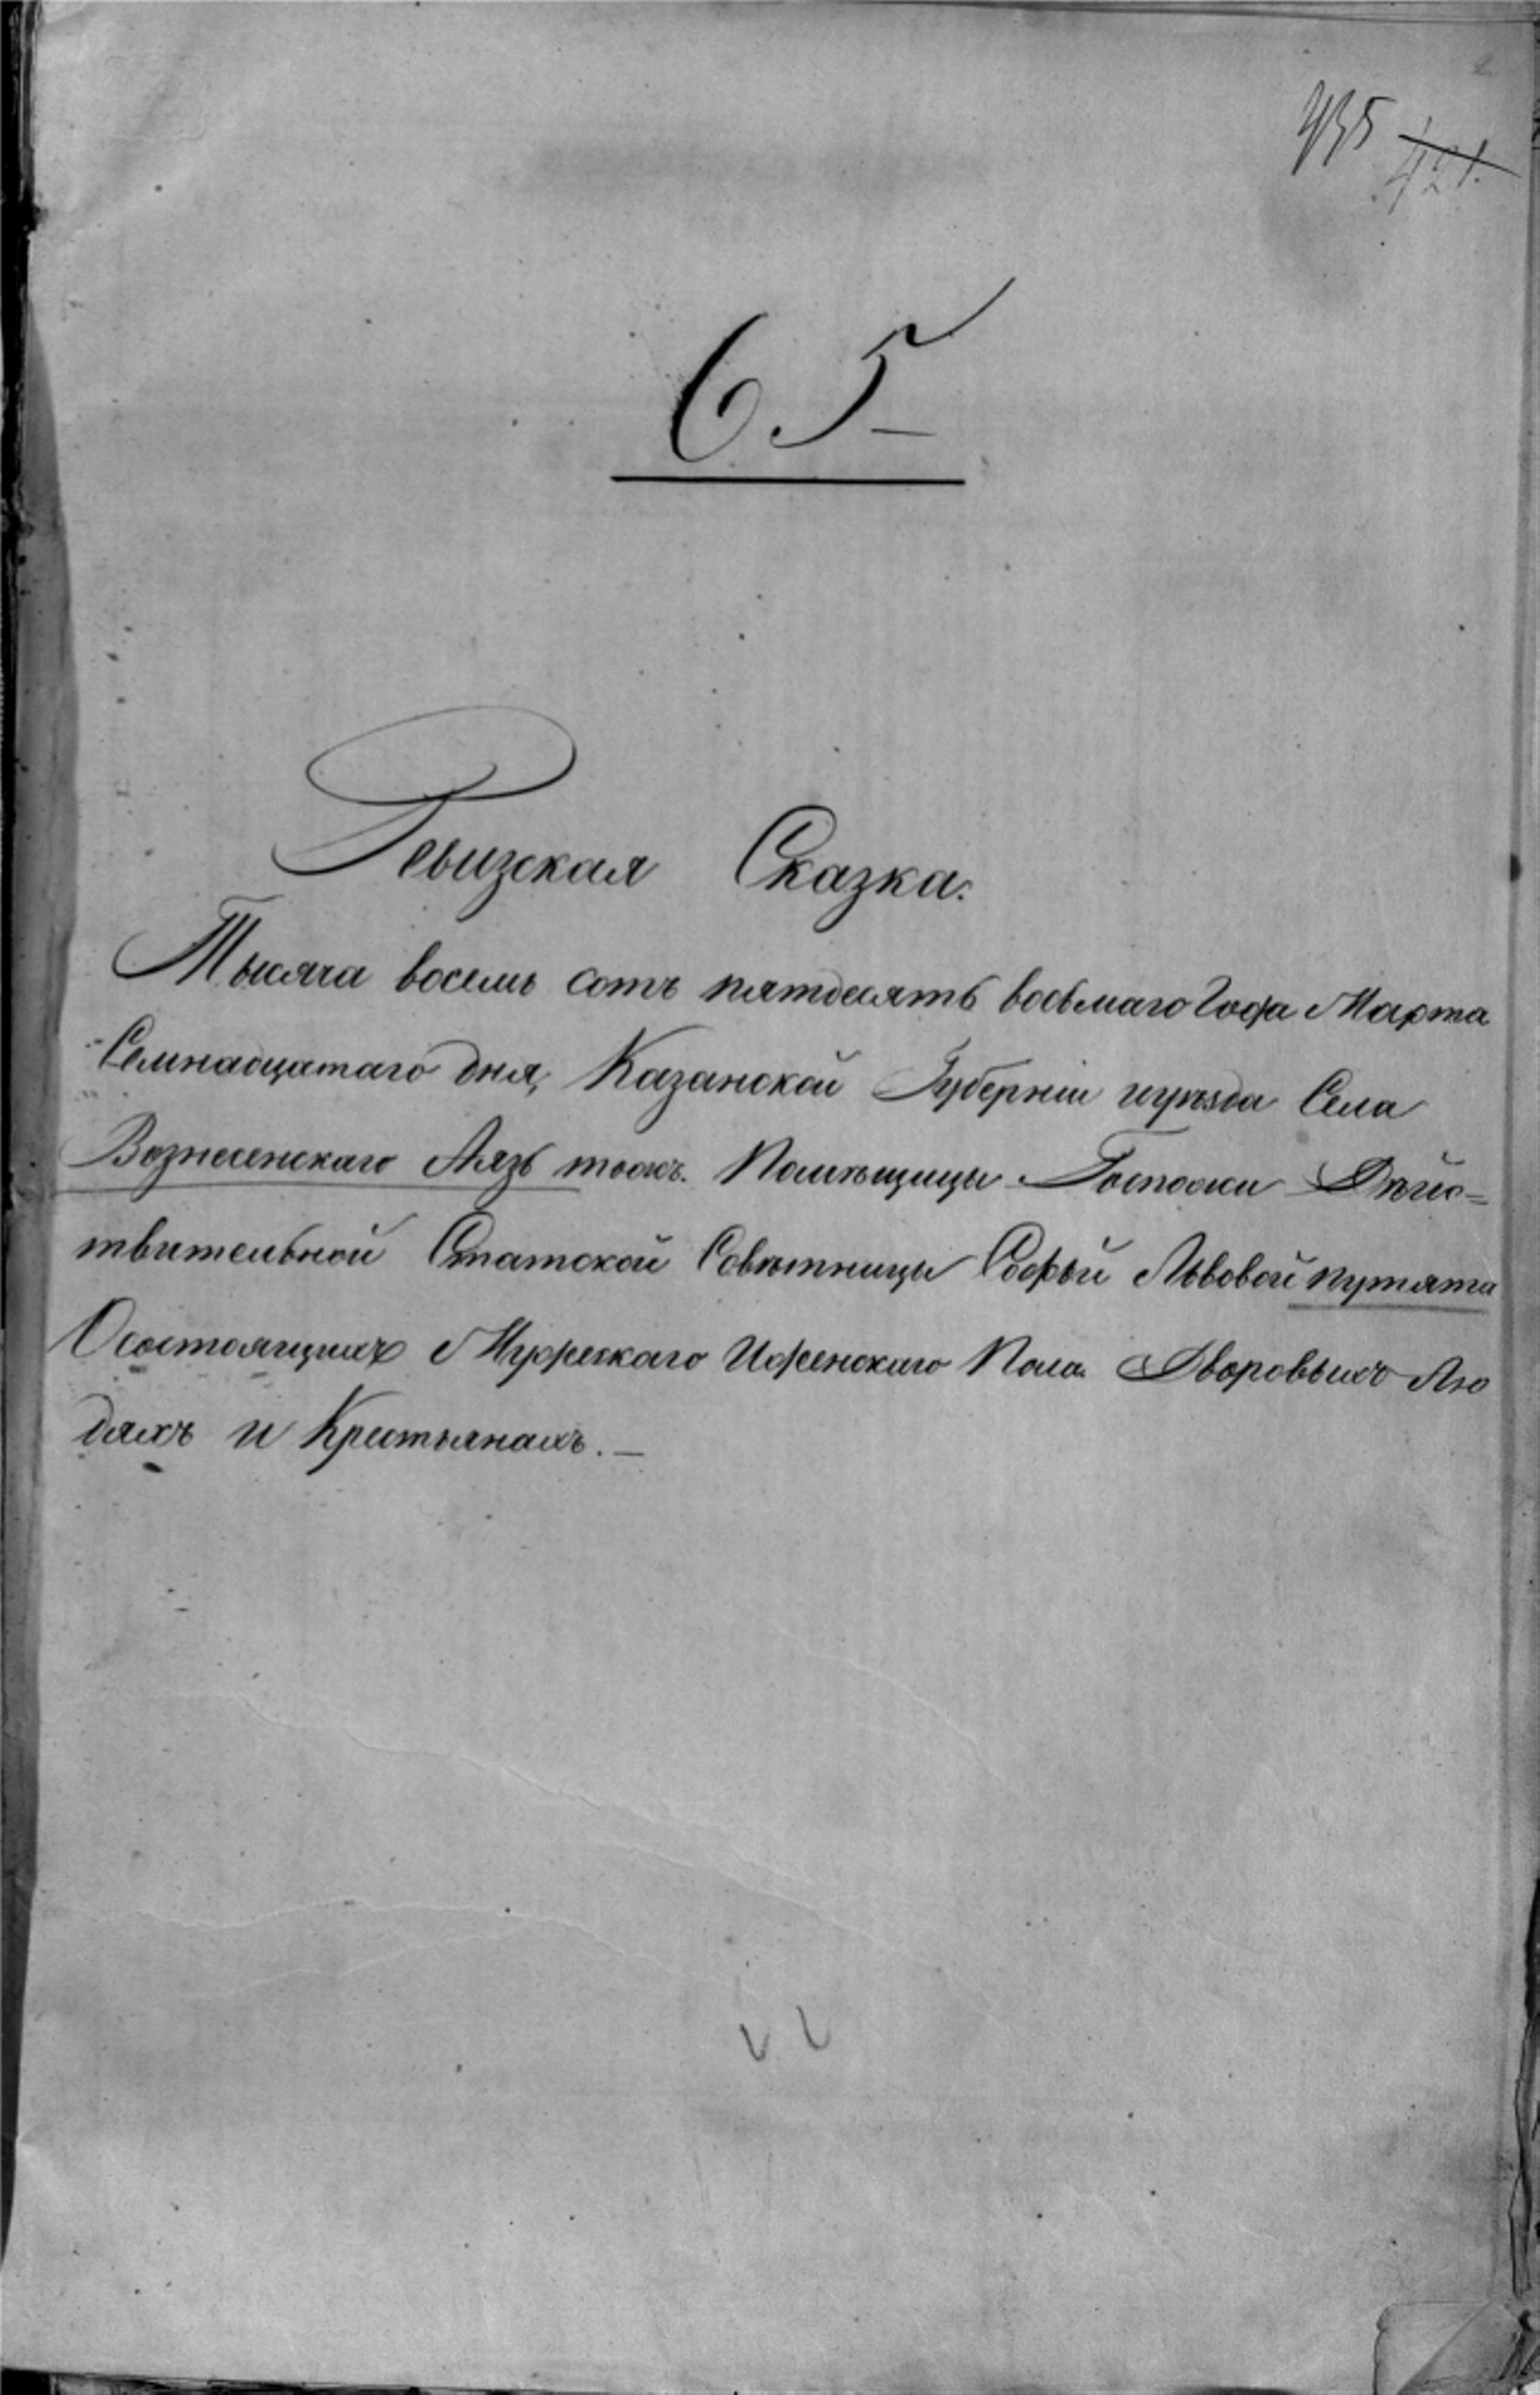 435 421.
65
Ревизская Сказка.
Тысяча восемь сотъ пятдесятъ восьмаго Года Марта
Семнадцатаго дня, Казанской Губерніи иуѣзда Села
Вознесенскаго тожъ. Помѣщицы Госпожи Дѣйс=
твительной Статской Совѣтницы Софьи Львовой путята
Осостоящихъ Мужескаго Иженскаго Пола Дворовыхъ Лю
дяхъ и Крестьянахъ.—